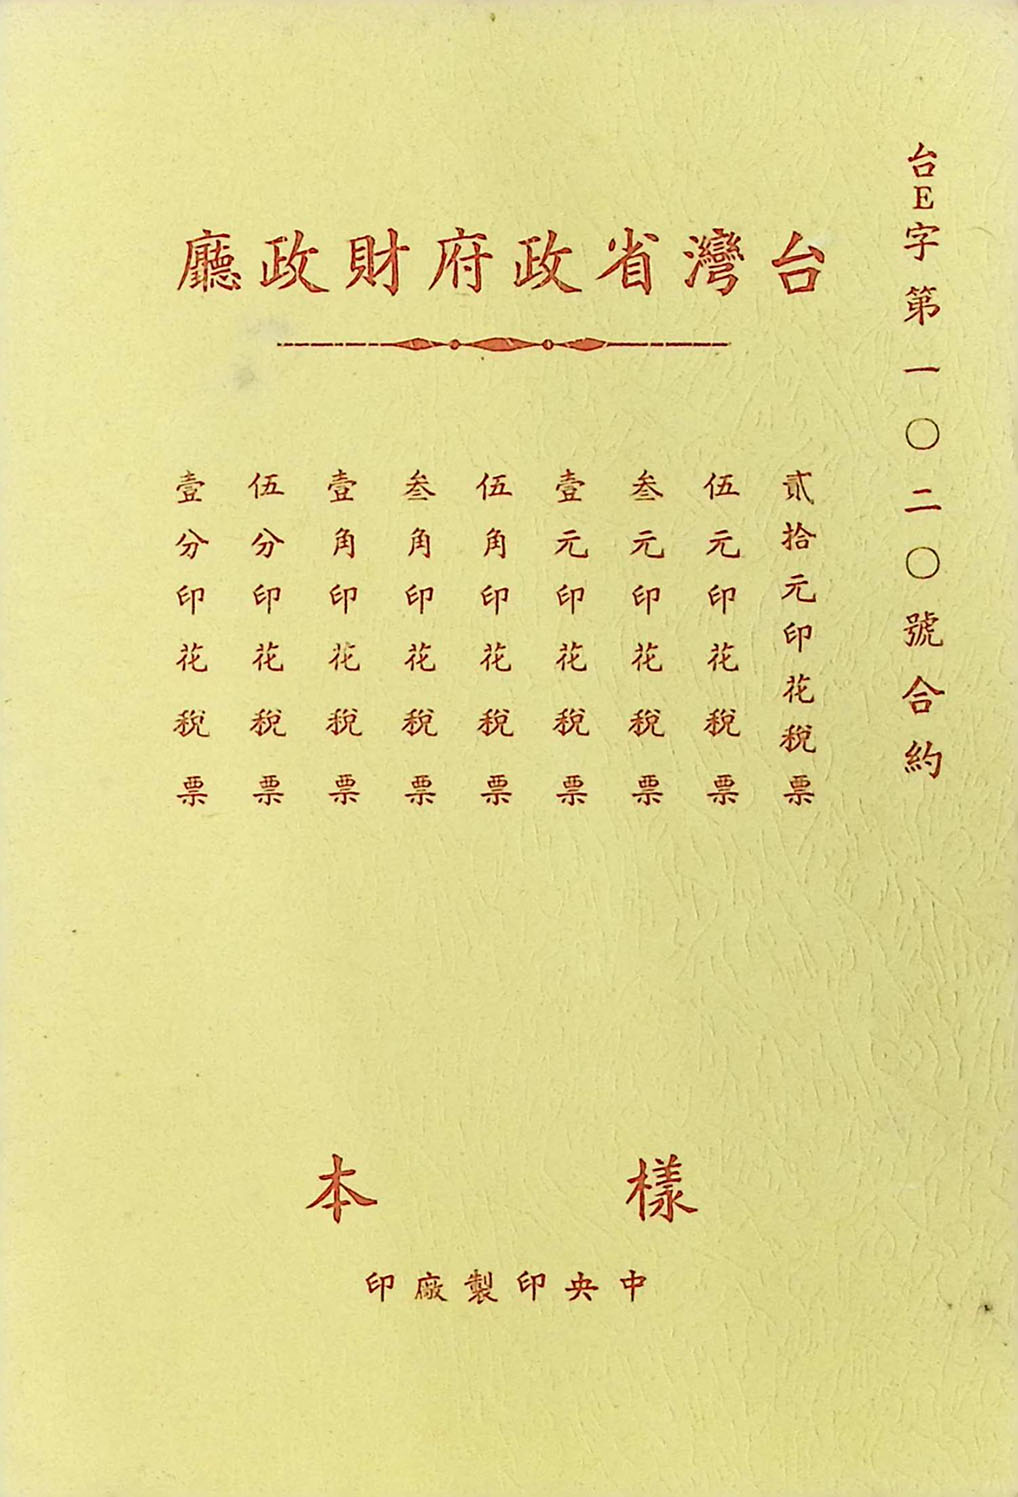 台E字第一〇二〇號合約
台灣省政府財政廳
貳拾元印花稅票
伍元印花稅票
叁元印花稅票
壹元印花稅票
伍角印花稅票
叁角印花稅票
壹角印花稅票
伍分印花稅票
壹分印花稅票
樣本
中央印製廠印